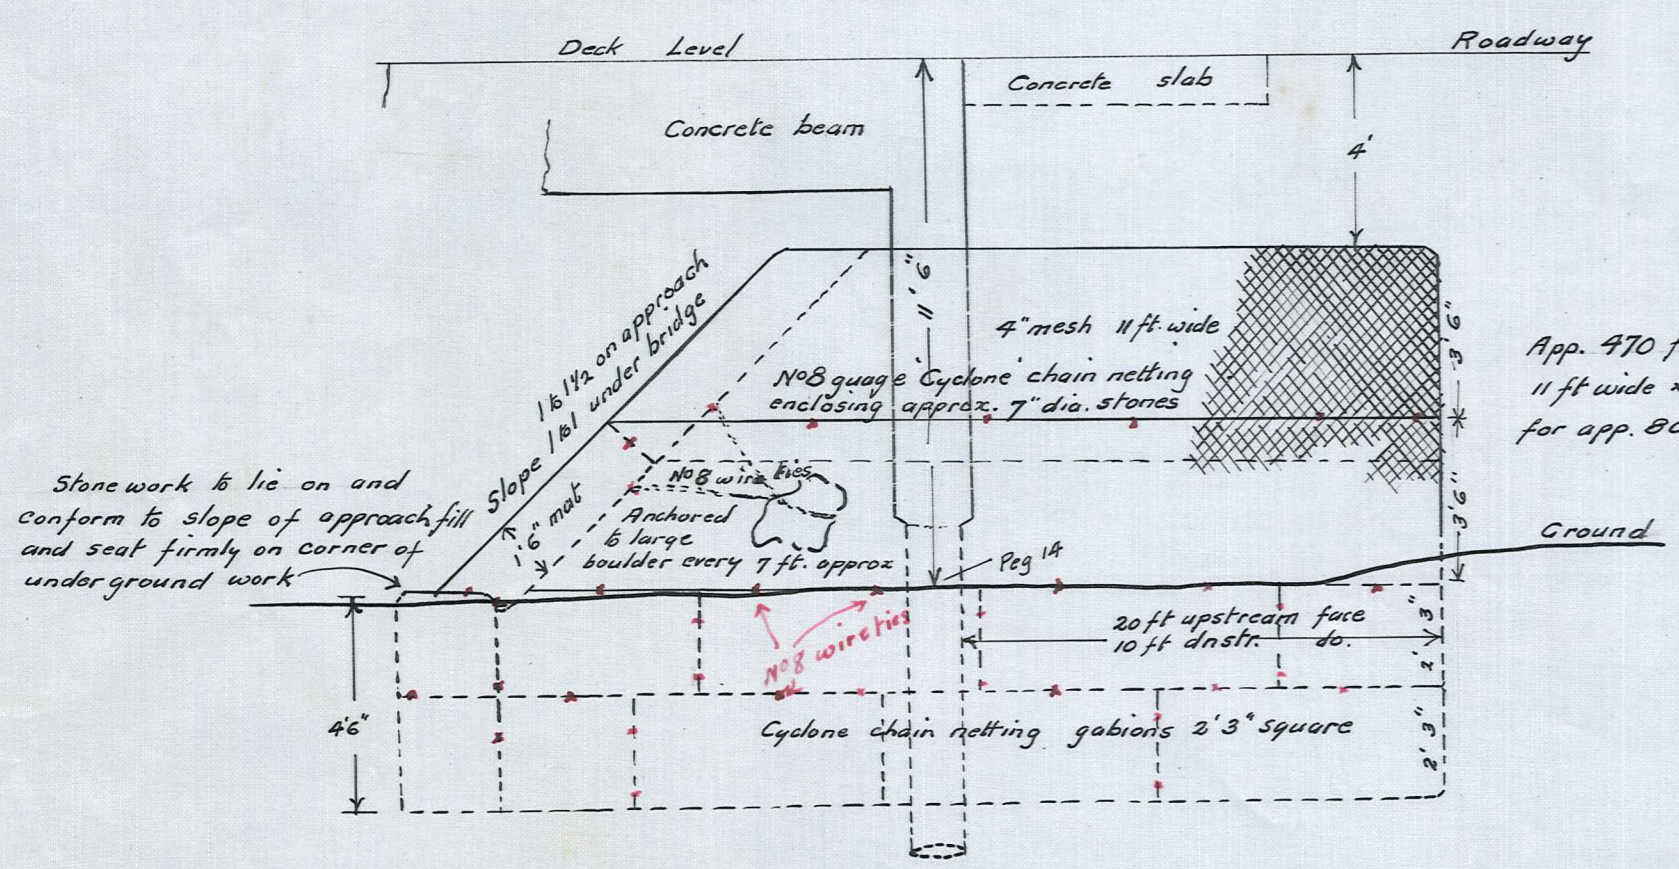 Deck Level
Roadway
Concrete slab
Concrete beam
4'
11' 6"
1 to 1½ on approach
Slope 1 to 1 under bridge
4" mesh 11 ft. wide
No 8 guage 'Cyclone' chain netting
enclosing approx. 7" dia. stones
3' 6"
App. 470 f
11 ft wide x
for app. 80
Stonework to lie on and
conform to slope of approach fill
and seat firmly on corner of
underground work
No 8 wire ties
6" mat
Anchored
to large
boulder every 7 ft. approx
3' 6"
Ground
Peg 1A
20 ft upstream face
10 ft dnstr. do.
2' 3"
No 8 wire ties
4'6"
Cyclone chain netting gabions 2' 3" square
2' 3"